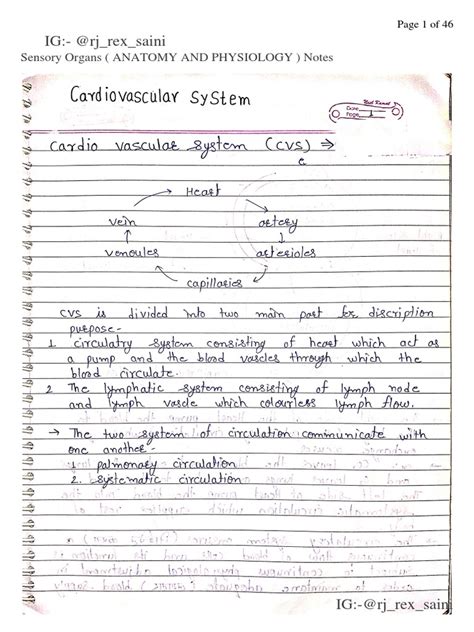 Page 1 of 46
IG:- @rj_rex_saini
Sensory Organs ( ANATOMY AND PHYSIOLOGY ) Notes
Cardiovascular System
Date
Page 1
Cardio vascular system (CVS) ⇒
Heart
vein artery
venoules arterioles
capillaries
CVS is divided into two main part for discription
purpose-
1. circulatry system consisting of heart which act as
a pump and the blood vascles through which the
blood circulate.
2 The lymphatic system consisting of lymph node
and lymph vascle which colourless lymph flow.
→ The two system of circulation communicate with
one another-
1. pulmonary circulation
2. systematic circulation
IG:-@rj_rex_saini